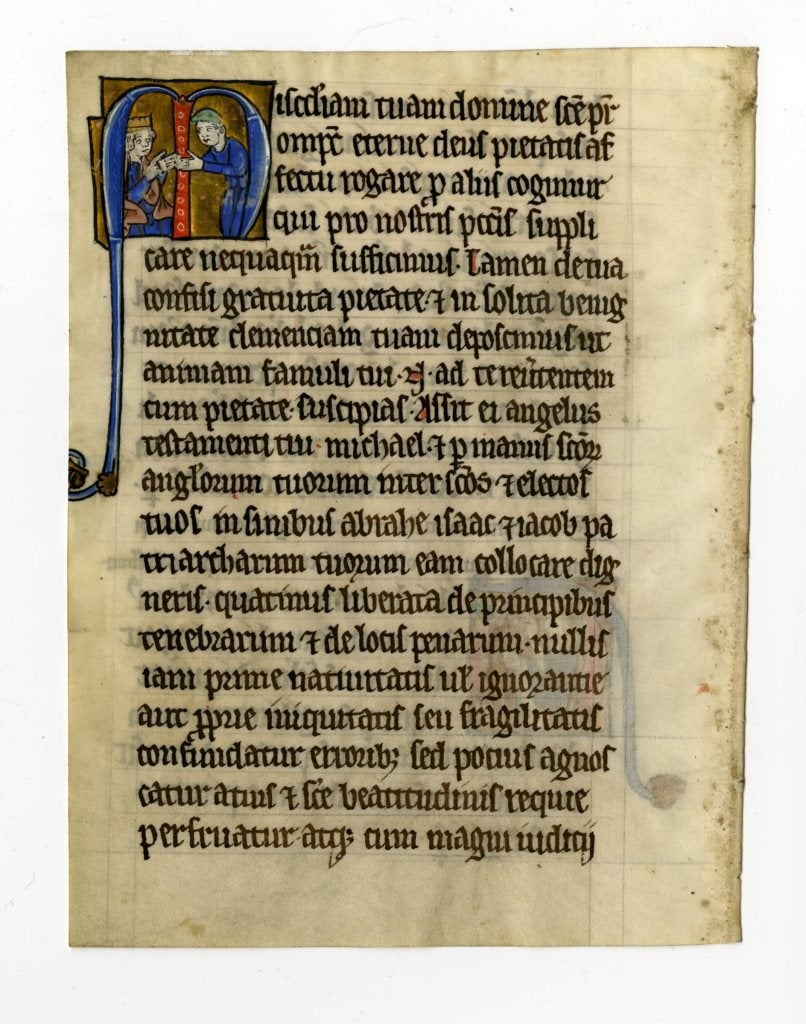 Misc̄diam tuam domine sc̄e pr̄
omp̄c eterne deus pietatis af
fectu rogare ꝓ aliis cogimur
qui pro nostris pcc̄is suppli
care nequaqm̄ sufficimus· Tamen de tua
confisi gratuita pietate· ⁊ in solita benig
nitate clemenciam tuam deposcimus ut
animam famuli tui· N· ad te reu̅tentem
cum pietate· suscipias· Assit ei angelus
testamenti tui· michael· ⁊ ꝑ manus sc̄oꝝ
angl̄orum tuorum inter sc̄os ⁊ electos
tuos in sinibus abrahe isaac ⁊ iacob pa
triarcharum tuorum eam collocare dig
neris· quatinus liberata de principibus
tenebrarum ⁊ de locis penarum· nullis
iam prime natiuitatis ul̄ ignorantie
aut ꝓprie iniquitatis seu fragilitatis
confundatur erroribꝫ sed pocius agnos
catur a tuis ⁊ sc̄e beatitudinis requie
perfruatur· atqꝫ cum magni iudicij